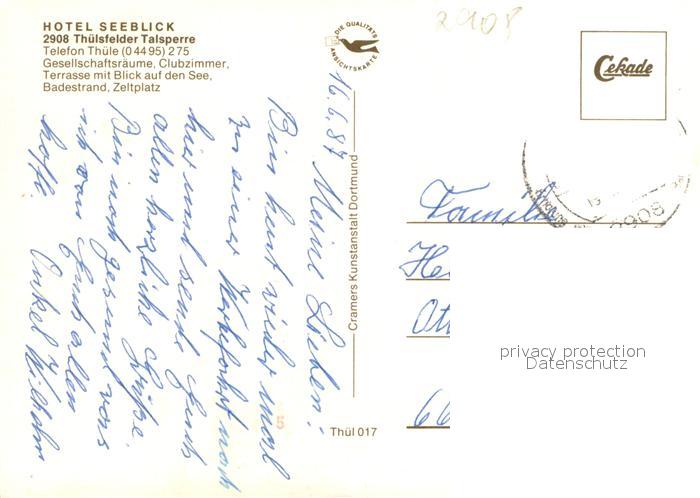 HOTEL SEEBLICK
2908 Thülsfelder Talsperre
Telefon Thüle (0 44 95) 2 75
Gesellschaftsräume, Clubzimmer,
Terrasse mit Blick auf den See,
Badestrand, Zeltplatz
DIE QUALITÄTS
ANSICHTSKARTE
2908
Cekade
16.6.87 Meine Lieben!
Bin heut wieder mal
zu einer Kaffeefahrt nach
hier und sende Euch
allen herzliche Grüße.
Bin noch gesund was
ich von Euch allen
hoffe. Onkel Wilhelm
Cramers Kunstanstalt Dortmund
Thül 017
5
2908
Familie
He
Ott
66
privacy protection
Datenschutz